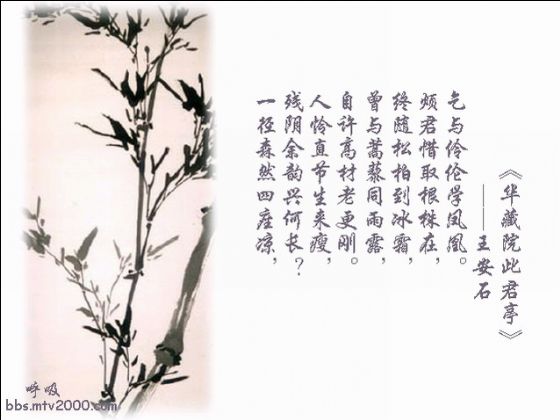 一径森然四座凉，
残阴余韵兴何长？
人怜直节生来瘦，
自许高材老更刚。
曾与蒿藜同雨露，
终随松柏到冰霜，
烦君惜取根株在，
乞与伶伦学凤凰。
《华藏院此君亭》
——王安石
呼吸
bbs.mtv2000.com